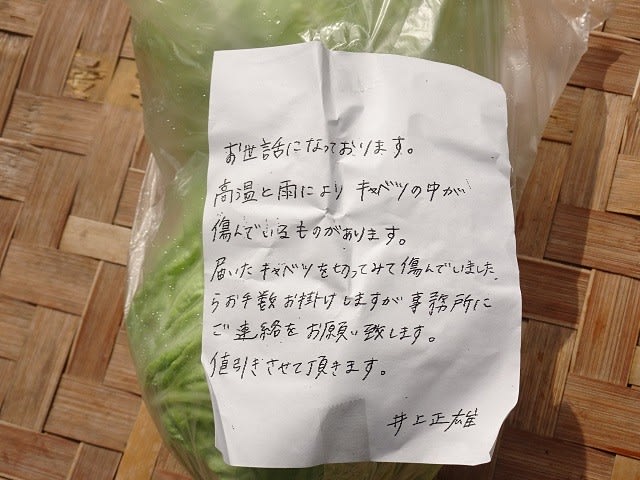 お世話になっております。
高温と雨により キャベツの中が
傷んでいるものがあります。
届いたキャベツを切ってみて傷んでいました
らお手数お掛けしますが事務所に
ご連絡をお願い致します。
値引きさせて頂きます。
井上正雄